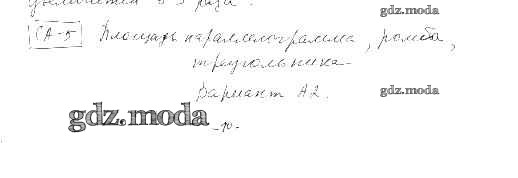 увеличится в 3 раза.
gdz.moda
СА-5 Площадь параллелограмма, ромба,
треугольника.
Вариант А2.
gdz.moda
gdz.moda
-10-